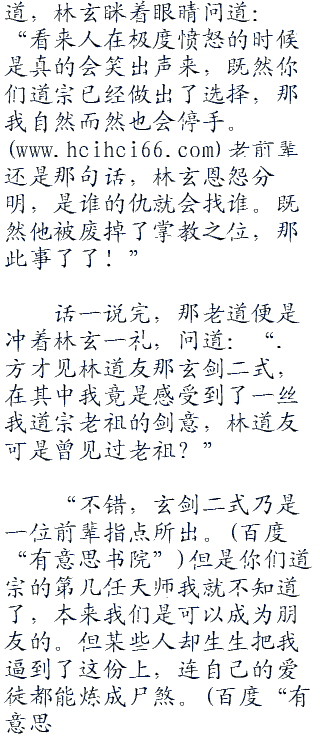 道，林玄眯着眼睛问道：
“看来人在极度愤怒的时候
是真的会笑出声来，既然你
们道宗已经做出了选择，那
我自然而然也会停手。
(www.hcihci66.com)老前辈
还是那句话，林玄恩怨分
明，是谁的仇就会找谁。既
然他被废掉了掌教之位，那
此事了了！”
话一说完，那老道便是
冲着林玄一礼，问道：“.
方才见林道友那玄剑二式，
在其中我竟是感受到了一丝
我道宗老祖的剑意，林道友
可是曾见过老祖？”
“不错，玄剑二式乃是
一位前辈指点所出。(百度
“有意思书院”)但是你们道
宗的第几任天师我就不知道
了，本来我们是可以成为朋
友的。但某些人却生生把我
逼到了这份上，连自己的爱
徒都能炼成尸煞。(百度“有
意思